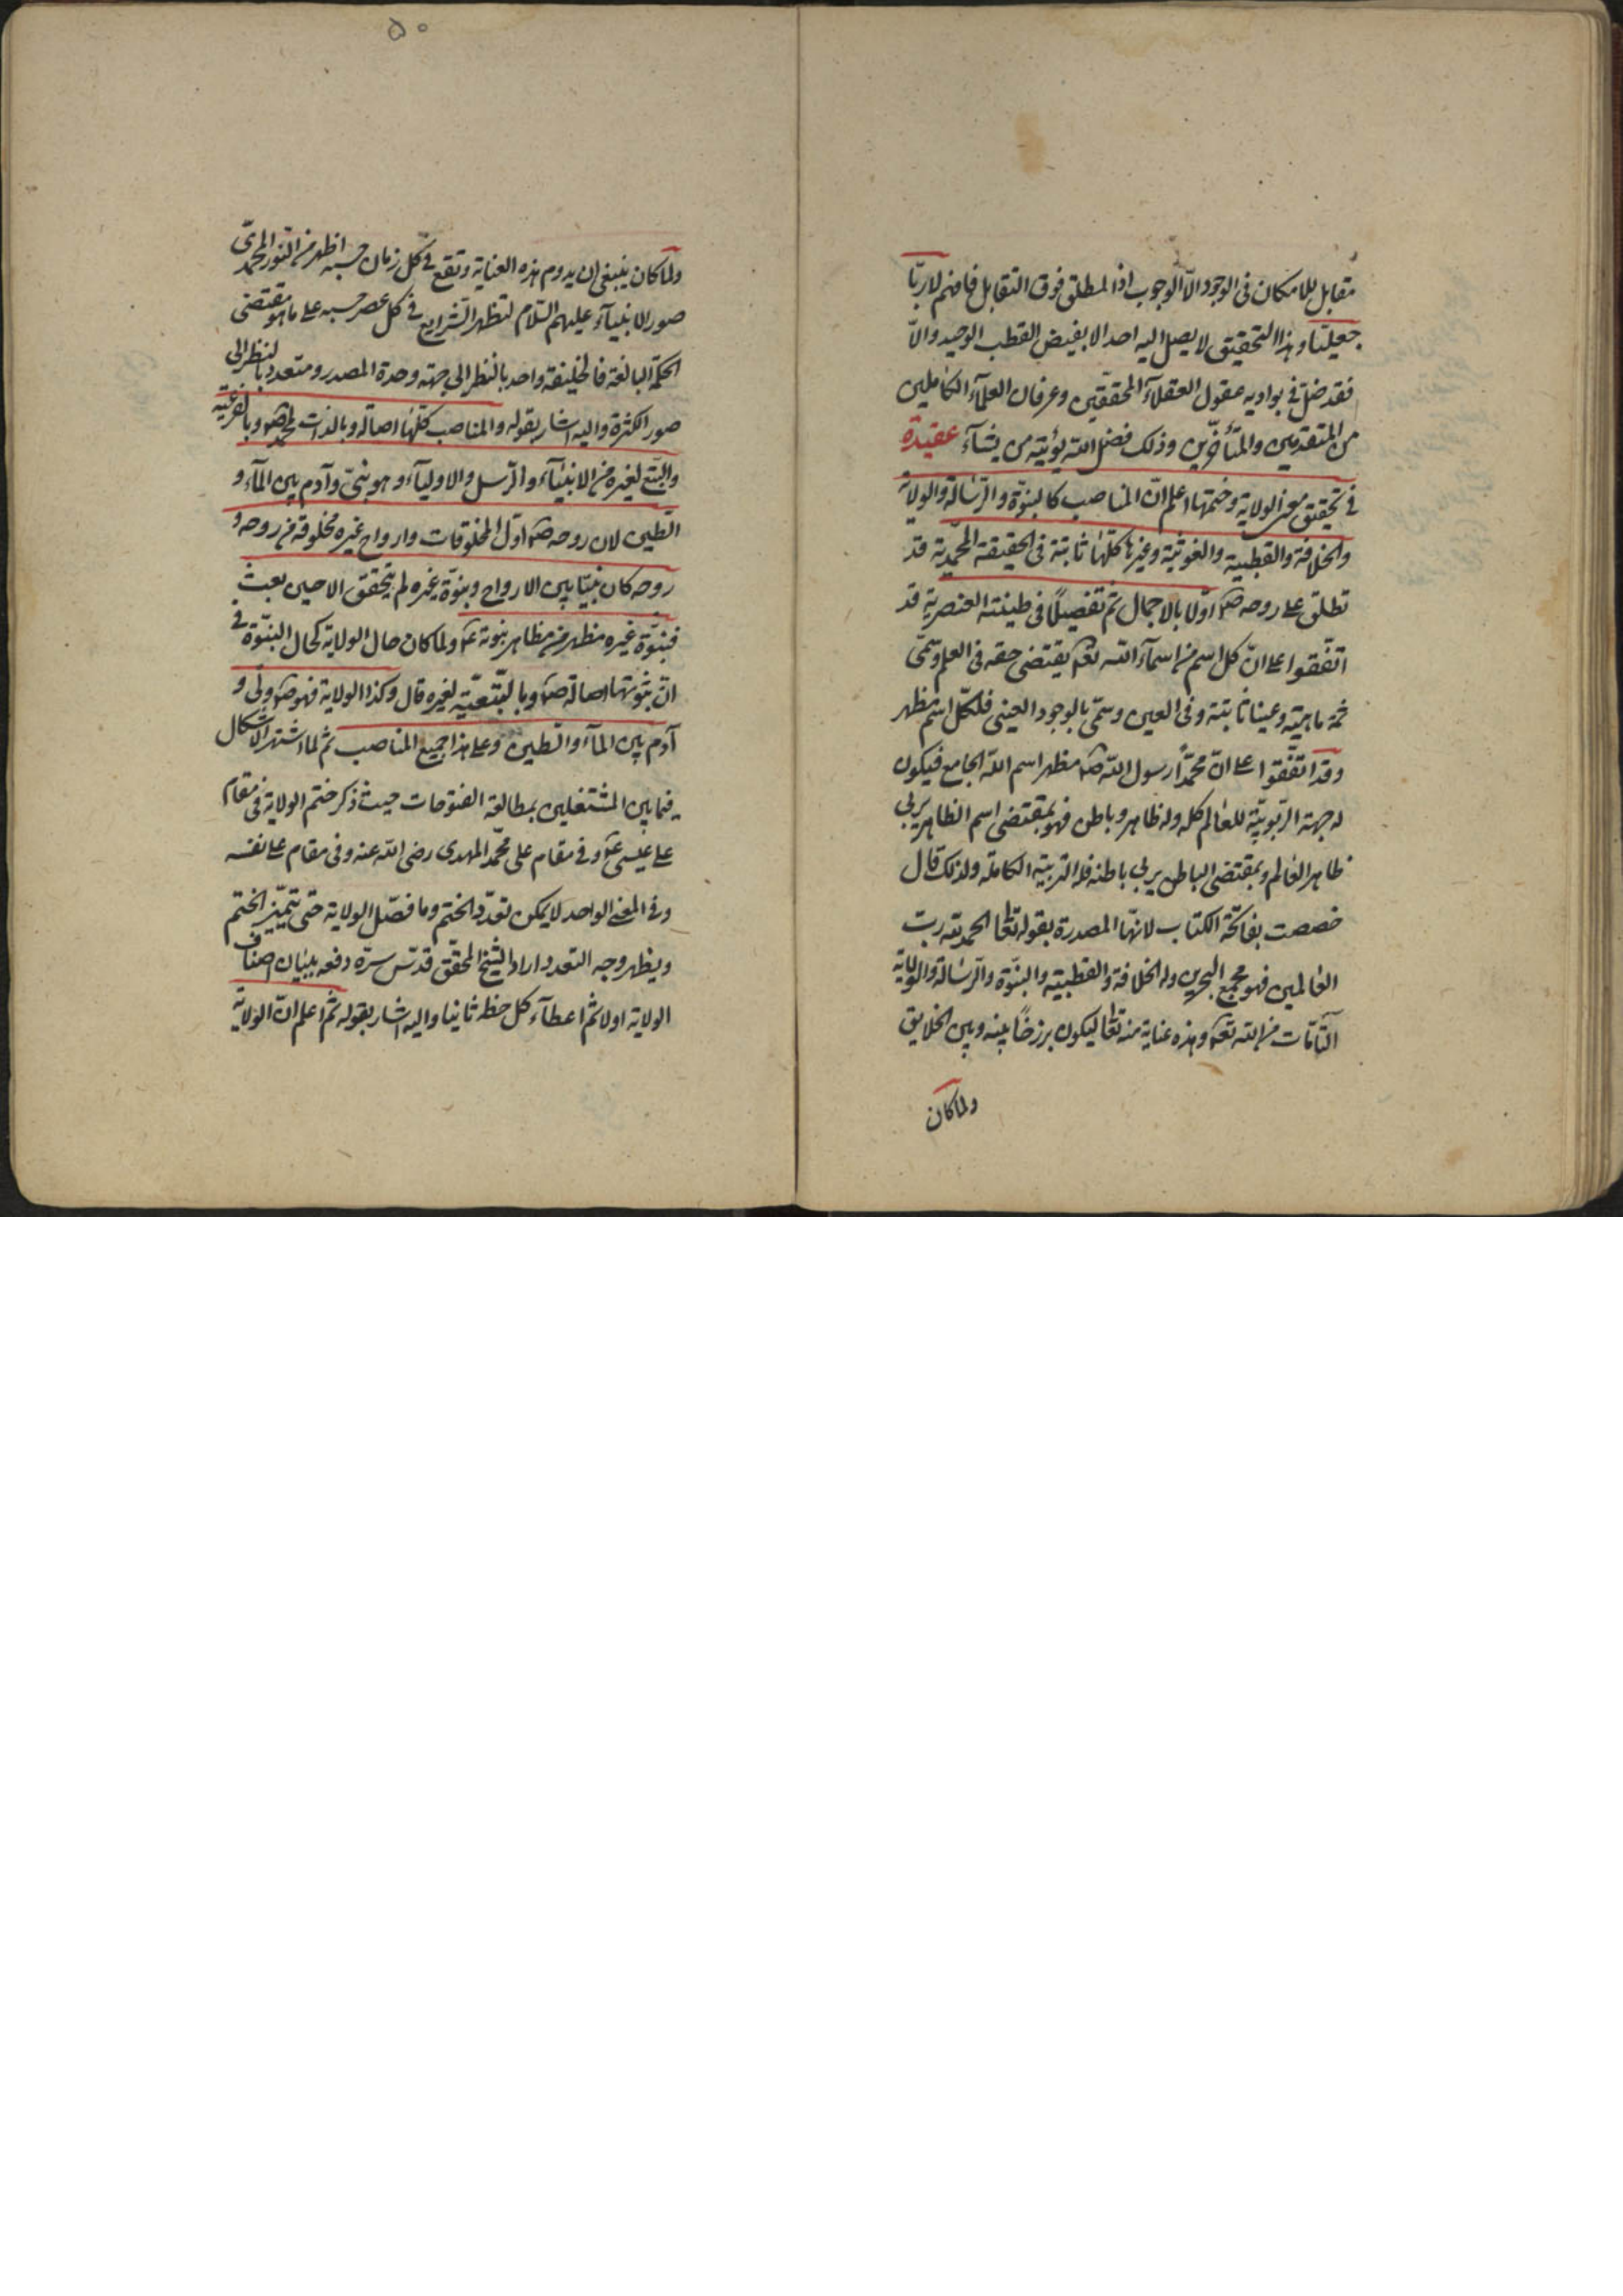 مقابل للامكان فى الوجود الاّ الوجوب اذ المطلق فوق التقابل فافهم لا ربّا
جعليّا وهذا التحقيق لا يصل اليه احد الا بفيض القطب الوحيد والاّ
فقد ضلّ فى بواديه عقول العقلاء المحققين وعرفان العلمآء الكاملين
من المتقدمين والمتأخّرين وذلك فضل الله يؤتيه من يشآء عقيدة
فى تحقيق معنى الولاية وختمها اعلم انّ المناصب كالنبوّة والرّسالة والولاية
والخلافة والقطبية والغوثية وغيرها كلّها ثابتة فى الحقيقة المحمّدية قد
تطلق على روحه صم اوّلا بالاجمال ثم تفصيلًا فى طينته العنصرية قد
اتفقوا على انّ كل اسم من اسمآء الله تعه يقتضى حقه فى العلم وسمّى
ثمة ماهيته وعينا ثابتة وفى العين وسمّى بالوجود العينى فلكلّ اسم مظهر
وقد اتّفقوا على انّ محمّدًا رسول الله صم مظهر اسم الله الجامع فيكون
له جهة الرّبوبيّة للعالم كله وله ظاهر وباطن فهو بمقتضى اسم الظاهر يربى
ظاهر العالم وبمقتضى الباطن يربى باطنه فله التربية الكاملة ولذلك قال
خصصت بفاتحة الكتاب لانهّا المصدرة بقوله تعا الحمد لله ربّ
العالمين فهو مجمع البحرين وله الخلافة والقطبية والنبوّة والرّسالة والولاية
التّامّات من الله تعه وهذه عناية منه تعا ليكون برزخًا بينه وبين الخلايق
ولما كان
٥٠
ولما كان ينبغى ان يدوم هذه العناية وتقع فى كل زمان حسبه اظهر من النور المحمّدىّ
صور الانبيآء عليهم السّلام لتظهر الشرايع فى كل عصر حسبه على ما هو مقتضى
الحكمة البالغة فالخليفة واحد بالنظر الى جهة وحدة المصدر ومتعدد بالنظر الى
صور الكثرة واليه اشار بقوله والمناصب كلّها اصالة وبالذات لمحمد صم وبالفرعية
والتّبع لغيره من الانبيآء والرّسل والاوليآء وهو نبىّ وآدم بين المآء و
الطين لان روحه صم اوّل المخلوقات وارواح غيره مخلوقة من روحه و
روحه كان نبيّا بين الارواح ونبوّة غيره لم يتحقق الا حين بعث
فنبوّة غيره مظهر من مظاهر نبوته عم ولما كان حال الولاية كحال النبوّة فى
انّ ثبوتها اصالة له صم وبالتبعيّة لغيره قال وكذا الولاية فهو صم ولىّ و
آدم بين المآء والطين وعلى هذا جميع المناصب ثم لما اشتهر الاشكال
فيما بين المشتغلين بمطالعة الفتوحات حيث ذكر ختم الولاية فى مقام
على عيسى عم وفى مقام على محمّد المهدى رضى الله عنه وفى مقام على نفسه
وفى المعنى الواحد لا يمكن تعدّد الختم وما فصّل الولاية حتى يتميّز الختم
ويظهر وجه التعدد اراد الشيخ المحقّق قدّس سرّه دفعه ببيان اصناف
الولاية اولا ثم اعطآء كل حظه ثانيا واليه اشار بقوله ثم اعلم انّ الولاية